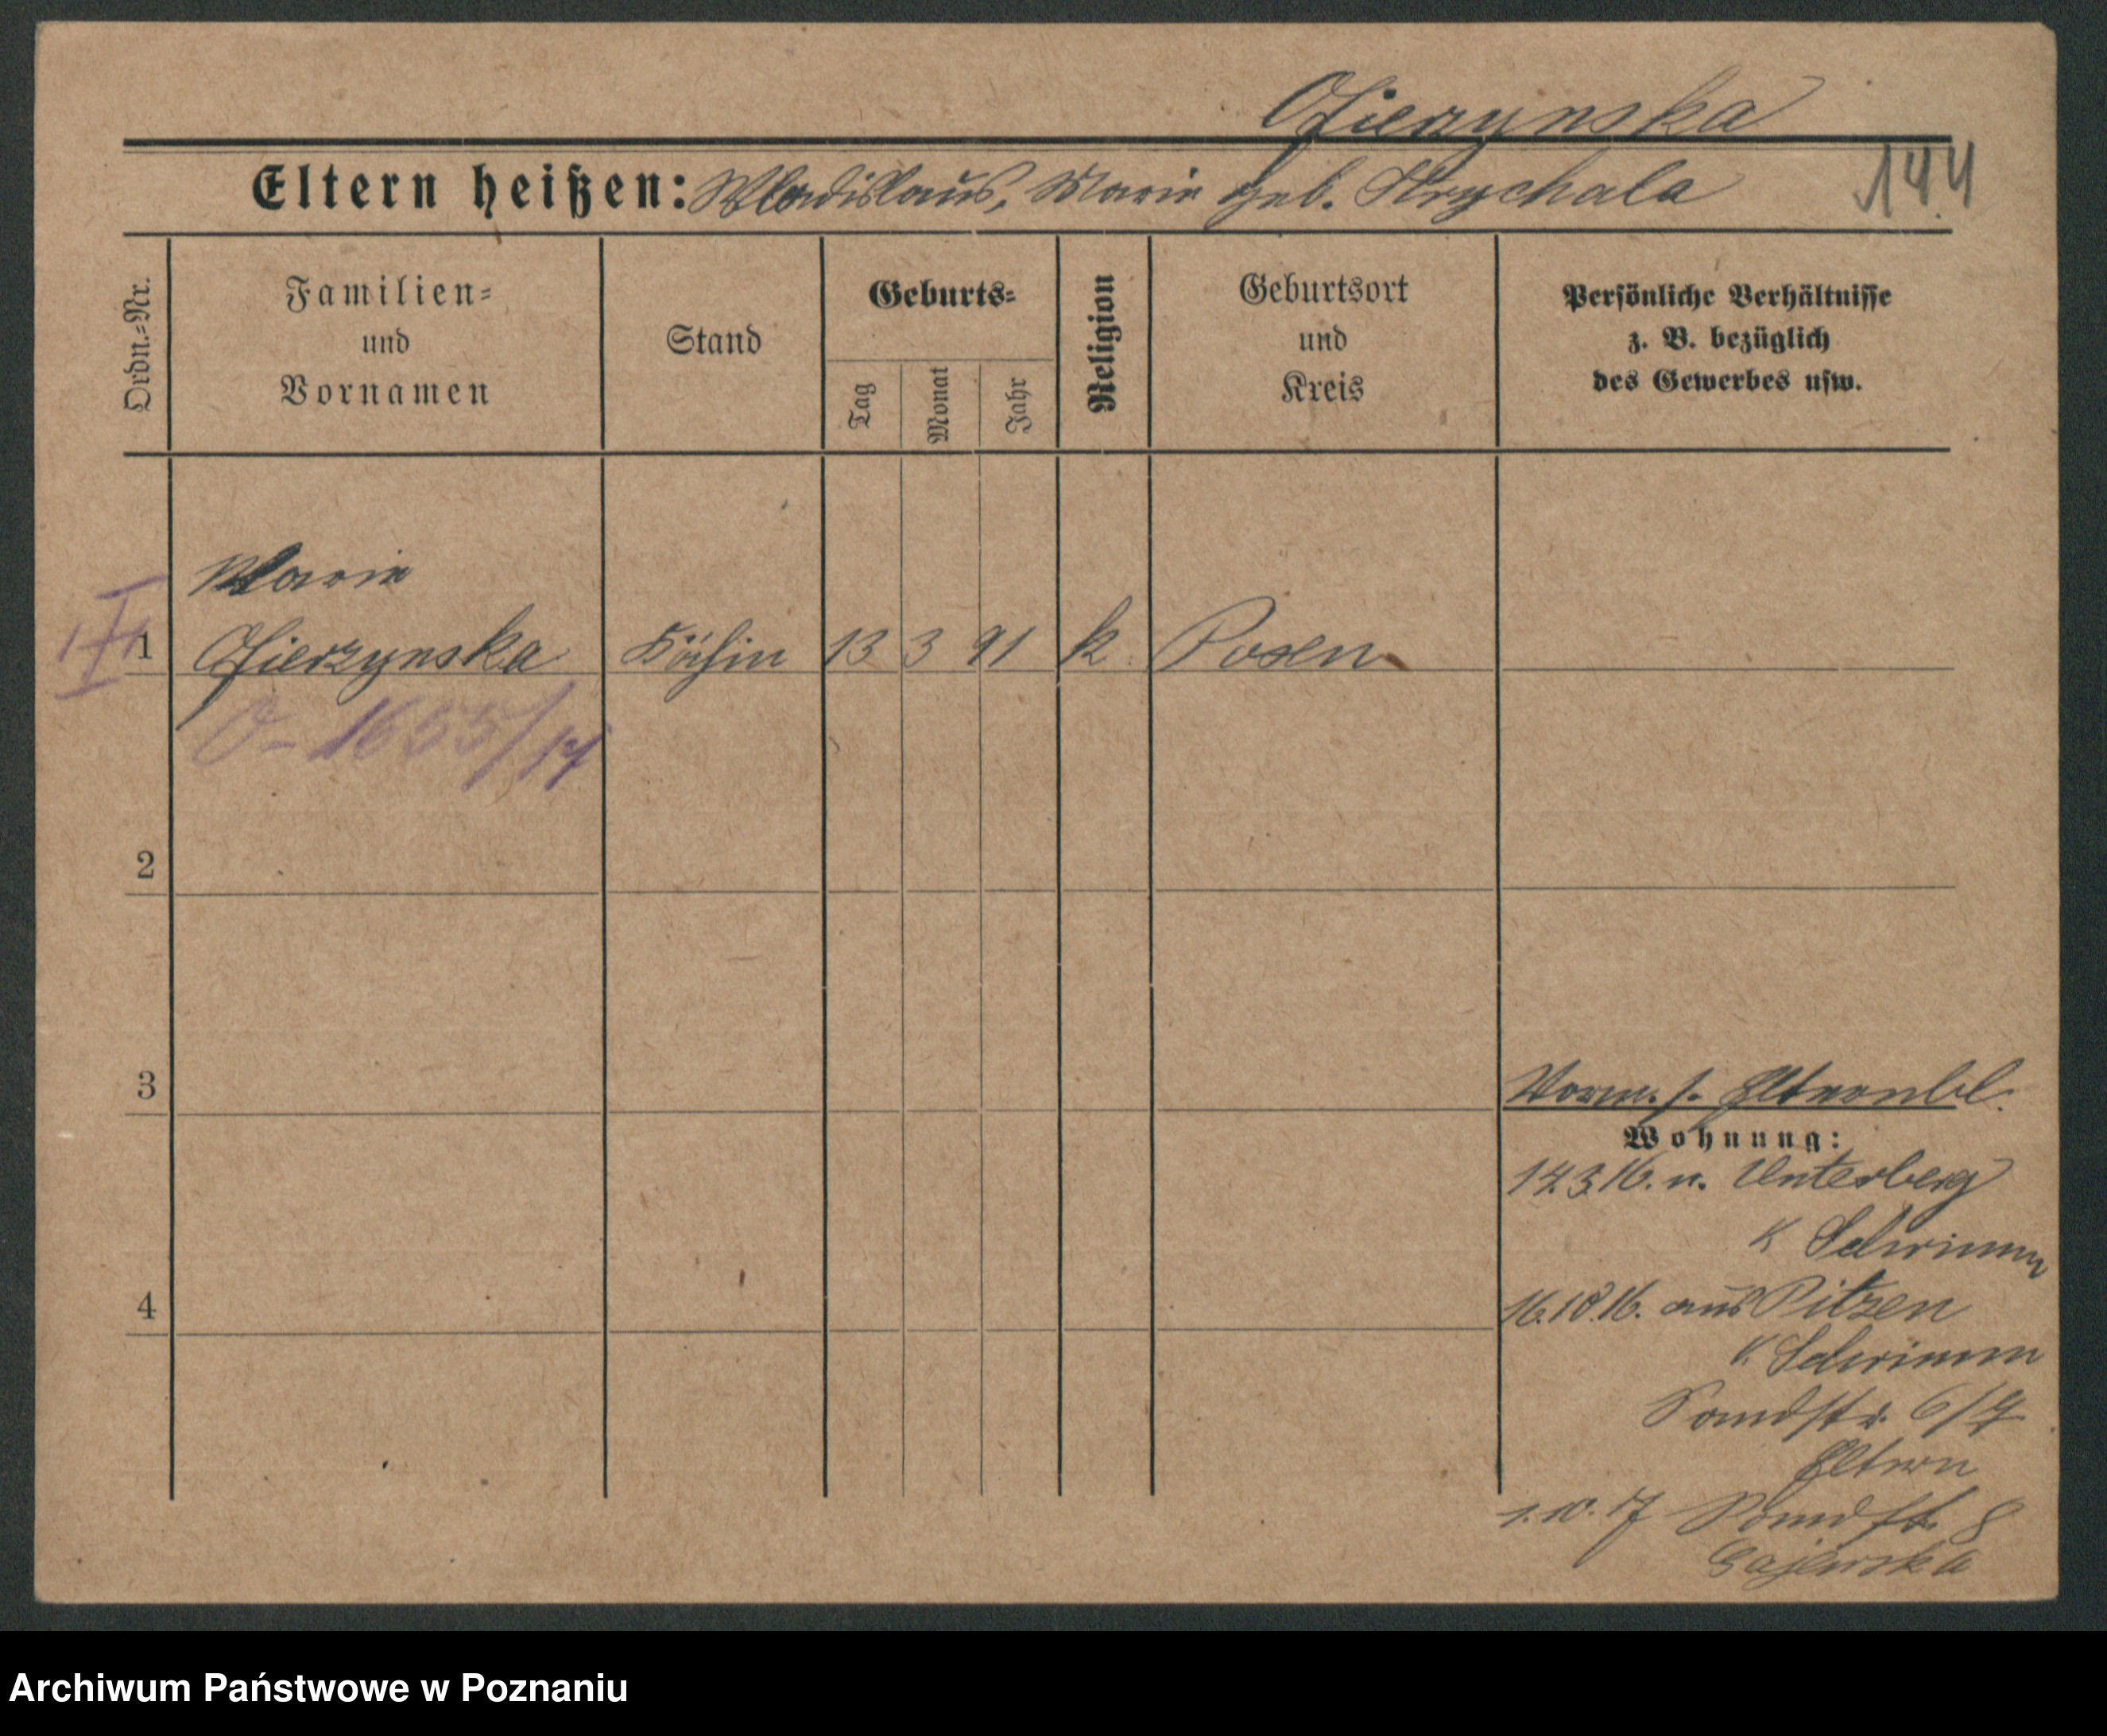 Ofierzynska
Eltern heißen: Wladislaus, Marie geb. Skrychala
144
Ordn.-Nr.
Familien- und Vornamen
Stand
Geburts-
Tag
Monat
Jahr
Religion
Geburtsort und Kreis
Persönliche Verhältnisse z. B. bezüglich des Gewerbes usw.
Marie
1 Ofierzynska Köchin 13 3 91 k Posen
1655/17
2
3
Vorm. s. Elternbl.
Wohnung:
14.3.16. n. Unterberg
K Schrimm
4
16.10.16. aus Pitzen
K. Schrimm
Sandstr. 6/7
Eltern
1.10.17 Sandstr. 8
Gajewska
Archiwum Państwowe w Poznaniu